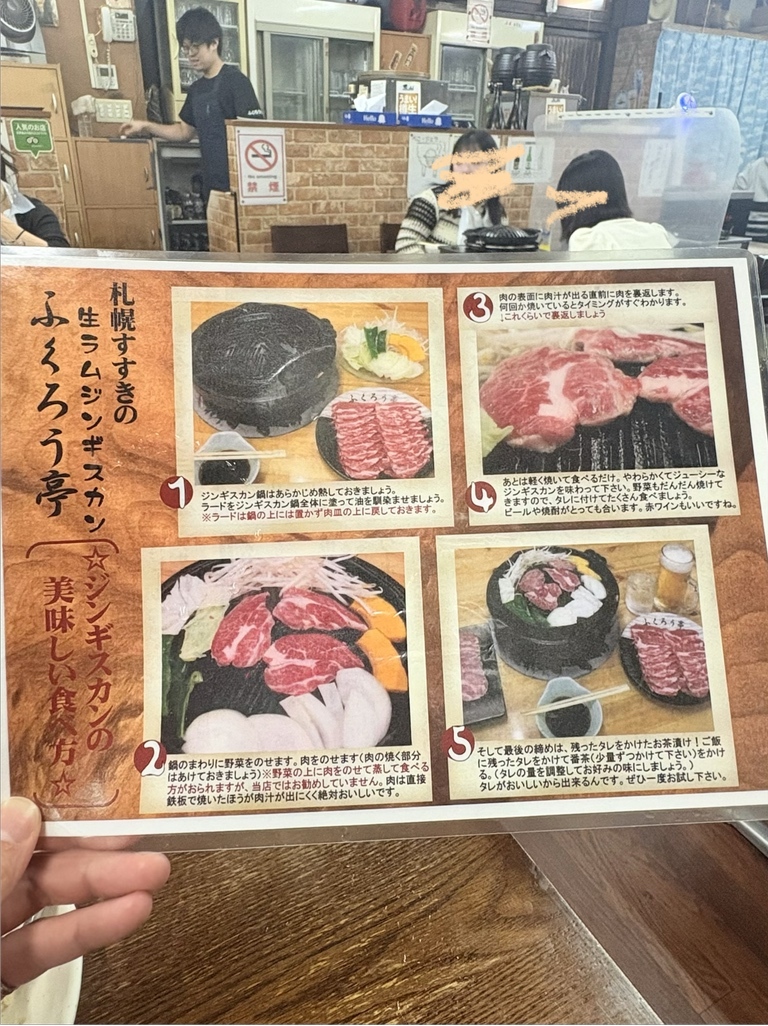 人気のお店
No smoking
禁煙
Hello
Hello
札幌すすきの
生ラムジンギスカン
ふくろう亭
☆ジンギスカンの
美味しい食べ方☆
ふくろう亭
1
ジンギスカン鍋はあらかじめ熱しておきましょう。
ラードをジンギスカン鍋全体に塗って油を馴染ませましょう。
※ラードは鍋の上には置かず肉皿の上に戻しておきます。
2
鍋のまわりに野菜をのせます。肉をのせます(肉の焼く部分
はあけておきましょう)※野菜の上に肉をのせて蒸して食べる
方がおられますが、当店ではお勧めしていません。肉は直接
鉄板で焼いたほうが肉汁が出にくく絶対おいしいです。
3
肉の表面に肉汁が出る直前に肉を裏返します。
何回か焼いているとタイミングがすぐわかります。
↓これくらいで裏返しましょう
4
あとは軽く焼いて食べるだけ。やわらかくてジューシーな
ジンギスカンを味わって下さい。野菜もだんだん焼けて
きますので、タレに付けてたくさん食べましょう。
ビールや焼酎がとっても合います。赤ワインもいいですね。
ふくろう亭
5
そして最後の締めは、残ったタレをかけたお茶漬け！ご飯
に残ったタレをかけて番茶(少量ずつかけて下さい)をかけ
る。(タレの量を調整してお好みの味にしましょう。)
タレがおいしいから出来るんです。ぜひ一度お試し下さい。